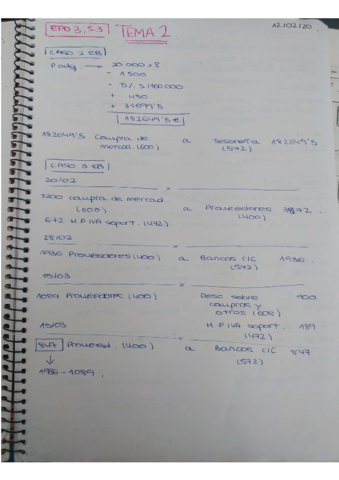 EPD 3, S.3 TEMA 2. 12/02/20
CASO 2 EB
P. adq. → 20.000 x 8
- 1500
- 5% s/160.000
+ 450
+ 31099'5
182049'5 €
182049'5 Compra de mercad. (600) a Tesorería 182049'5 (572)
CASO 3 EB
20/02
3200 compra de mercad (600) a Proveedores 3872 (400)
672 H.P IVA soport. (472)
28/02
1936 Proveedores (400) a Bancos C/C 1936. (572)
15/03
1089 Proveedores (400) Desc. sobre compras y otros (608) 900
15/03 H.P IVA soport. 189 (472)
847 Proveed. (400) a Bancos C/C 847 (572)
↓
1936 - 1089.